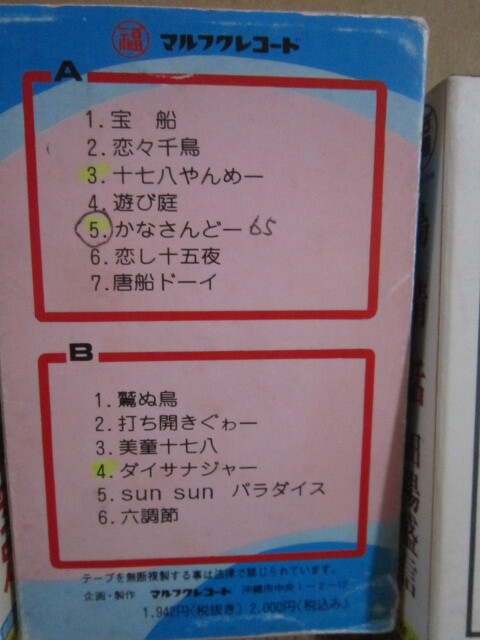 福 マルフクレコード
A
1. 宝 船
2. 恋々千鳥
3. 十七八やんめー
4. 遊び庭
5. かなさんどー 65
6. 恋し十五夜
7. 唐船ドーイ
B
1. 鷲ぬ鳥
2. 打ち開きぐゎー
3. 美童十七八
4. ダイサナジャー
5. sun sun パラダイス
6. 六調節
テープを無断複製する事は法律で禁じられています。
企画・製作 マルフクレコード 沖縄市中央1-2-12
1,942円(税抜き) 2,000円(税込み)